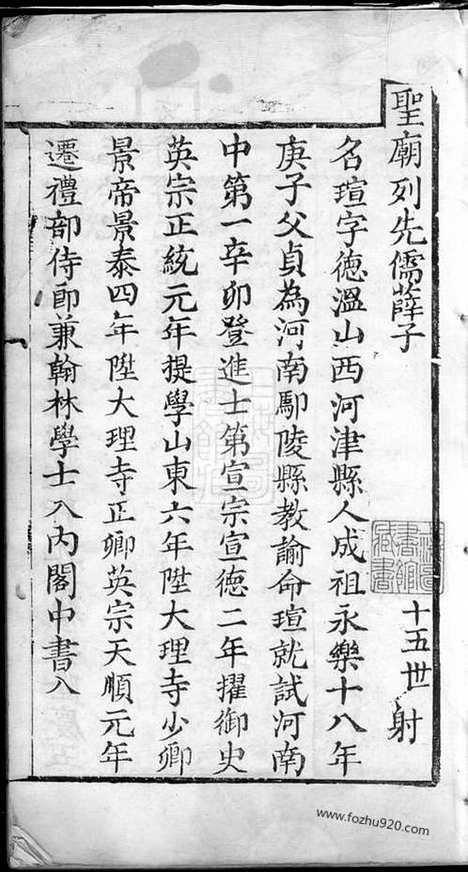 聖廟列先儒薛子
十五世 射
名瑄字德溫山西河津縣人成祖永樂十八年
庚子父貞為河南鄢陵縣教諭命瑄就試河南
中第一辛卯登進士第宣宗宣德二年擢御史
英宗正統元年提學山東六年陞大理寺少卿
景帝景泰四年陞大理寺正卿英宗天順元年
遷禮部侍郎兼翰林學士入內閣中書八
www.fozhu920.com